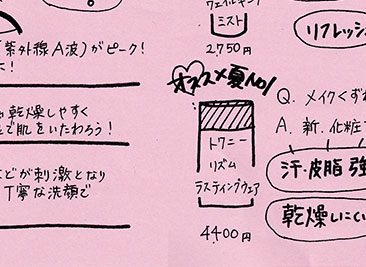 紫外線A波)がピーク!
に!
乾燥しやすく
で肌をいたわろう!
どが刺激となり
丁寧な洗顔で
ウェイルキング
ミスト
2,750円
リフレッシ
オススメ夏No1
トワニー
リズム
ラスティングウェア
4400円
Q. メイクくずれ
A. 新.化粧下
汗・皮脂 強
乾燥しにくい